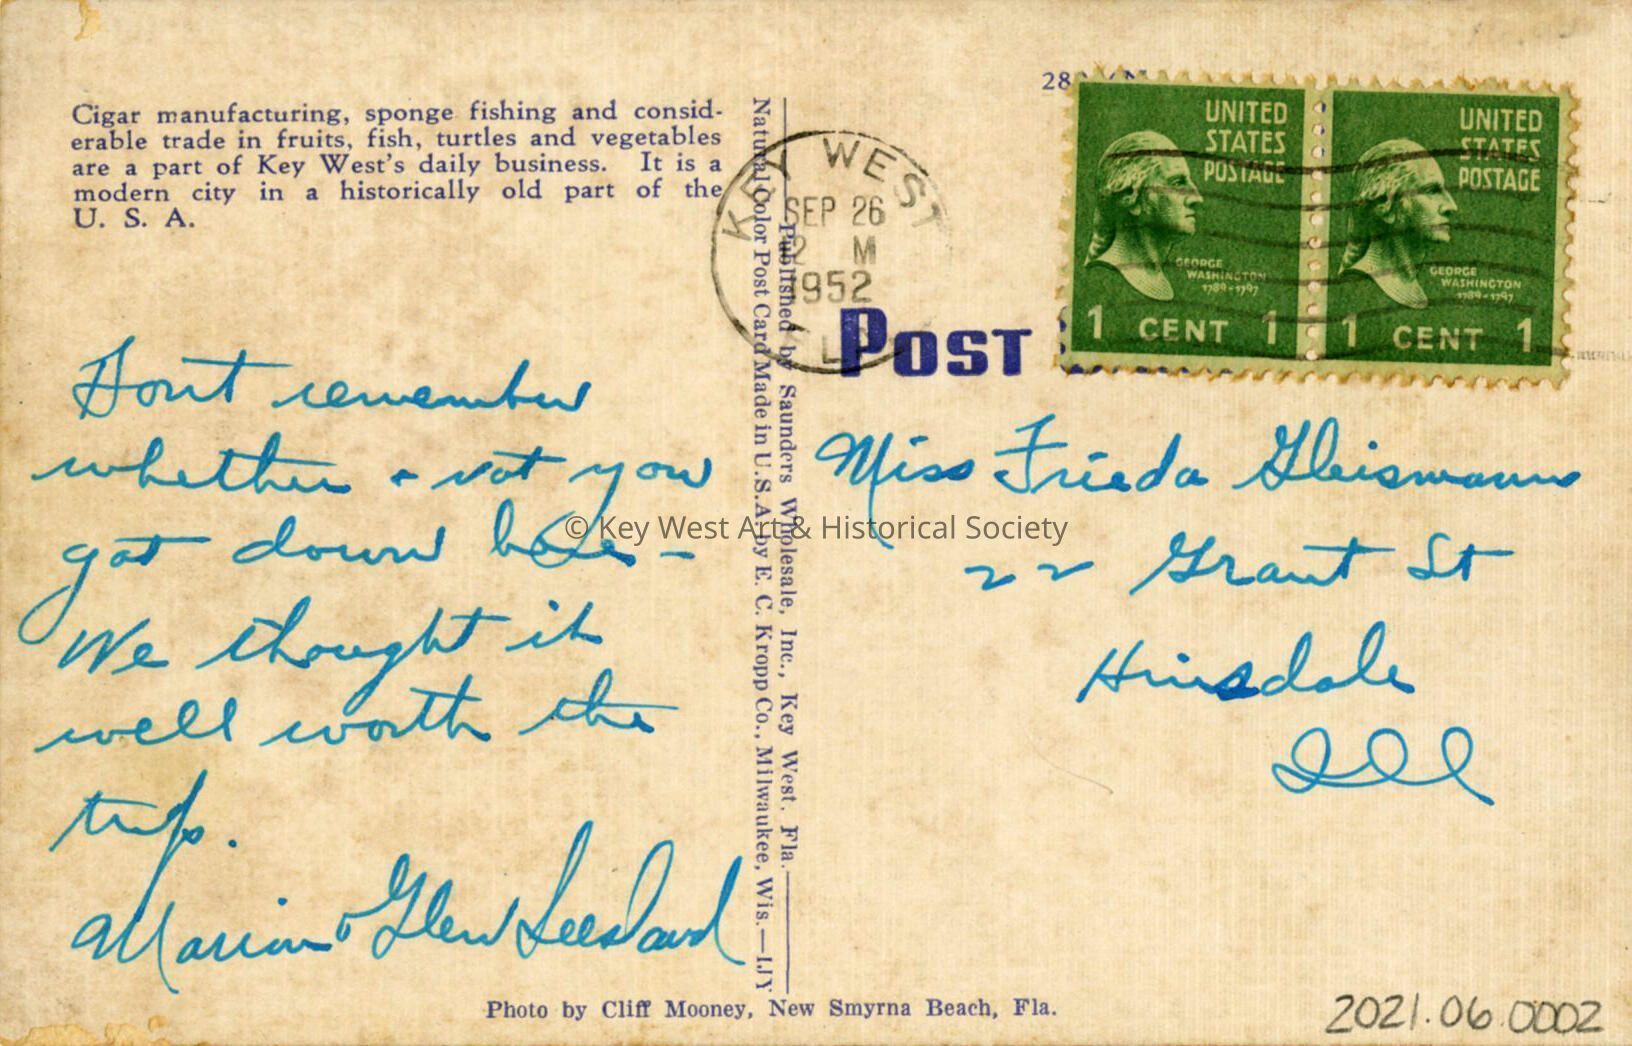 Cigar manufacturing, sponge fishing and consid-
erable trade in fruits, fish, turtles and vegetables
are a part of Key West's daily business. It is a
modern city in a historically old part of the
U. S. A.
Dont remember
whether or not you
got down here-
We thought it
well worth the
trip.
Marion & Glen
Natural Color Post Card Made in U.S.A. by E. C. Kropp Co., Milwaukee, Wis.—IJY
Published by Saunders Wholesale, Inc., Key West, Fla.
KEY WEST
SEP 26
2 M
1952
28
UNITED
STATES
POSTAGE
GEORGE
WASHINGTON
1789-1797
1 CENT 1
UNITED
STATES
POSTAGE
GEORGE
WASHINGTON
1789-1797
1 CENT 1
POST
Miss Frieda Gleismann
22 Grant St
Hinsdale
Ill
© Key West Art & Historical Society
Photo by Cliff Mooney, New Smyrna Beach, Fla.
2021.06.0002